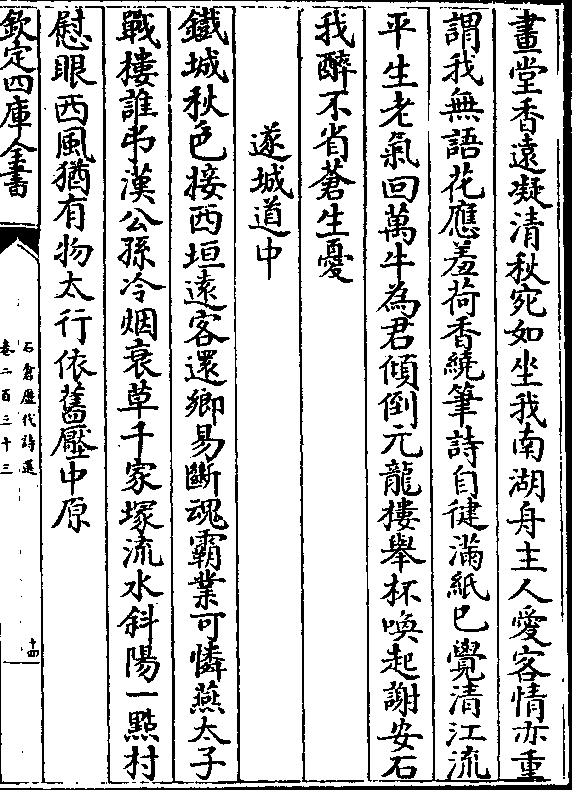 畫堂香遠凝清秋宛如坐我南湖舟主人愛客情亦重
謂我無語花應羞荷香繞筆詩自健滿紙巳覺清江流
平生老氣回萬牛為君傾倒元龍樓舉杯喚起謝安石
我醉不省蒼生憂
遂城道中
鐵城秋色接西垣遠客還鄉易斷魂霸業可憐燕太子
戰樓誰弔漢公孫冷烟衰草千家塚流水斜陽一點村
慰眼西風猶有物太行依舊壓中原
欽定四庫全書
石倉歷代詩選
卷二百三十三
十四